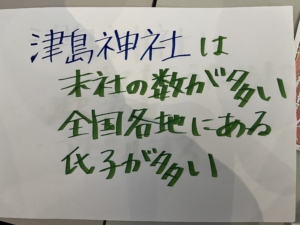 津島神社は
末社の数が多い
全国各地にある
氏子が多い